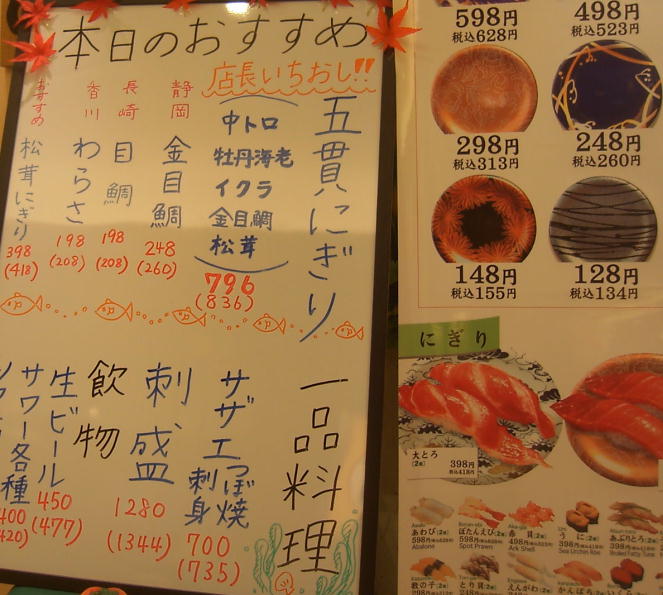 本日のおすすめ
店長いちおし!!
五貫にぎり
中トロ
牡丹海老
イクラ
金目鯛
松茸
796
(836)
静岡
金目鯛
248
(260)
長崎
目鯛
198
(208)
香川
わらさ
198
(208)
おすすめ
松茸にぎり
398
(418)
一品料理
サザエつぼ焼
刺身
700
(735)
刺盛
1280
(1344)
飲物
生ビール
450
(477)
サワー各種
400
420)
598円
税込628円
498円
税込523円
298円
税込313円
248円
税込260円
148円
税込155円
128円
税込134円
にぎり
大とろ
(2貫)
398円
税込418円
Awabi
あわび(2貫)
598円
Abalone
Botan-ebi
ぼたんえび(2貫)
598円
Spot Prawn
Aka-gai
赤貝(2貫)
498円
Ark Shell
Uni
うに(2貫)
Sea Urchin Roe
あぶりとろ(2貫)
Broiled Fatty Tuna
数の子(2貫)
とり貝(2貫)
えんがわ
かんぱち
いくら